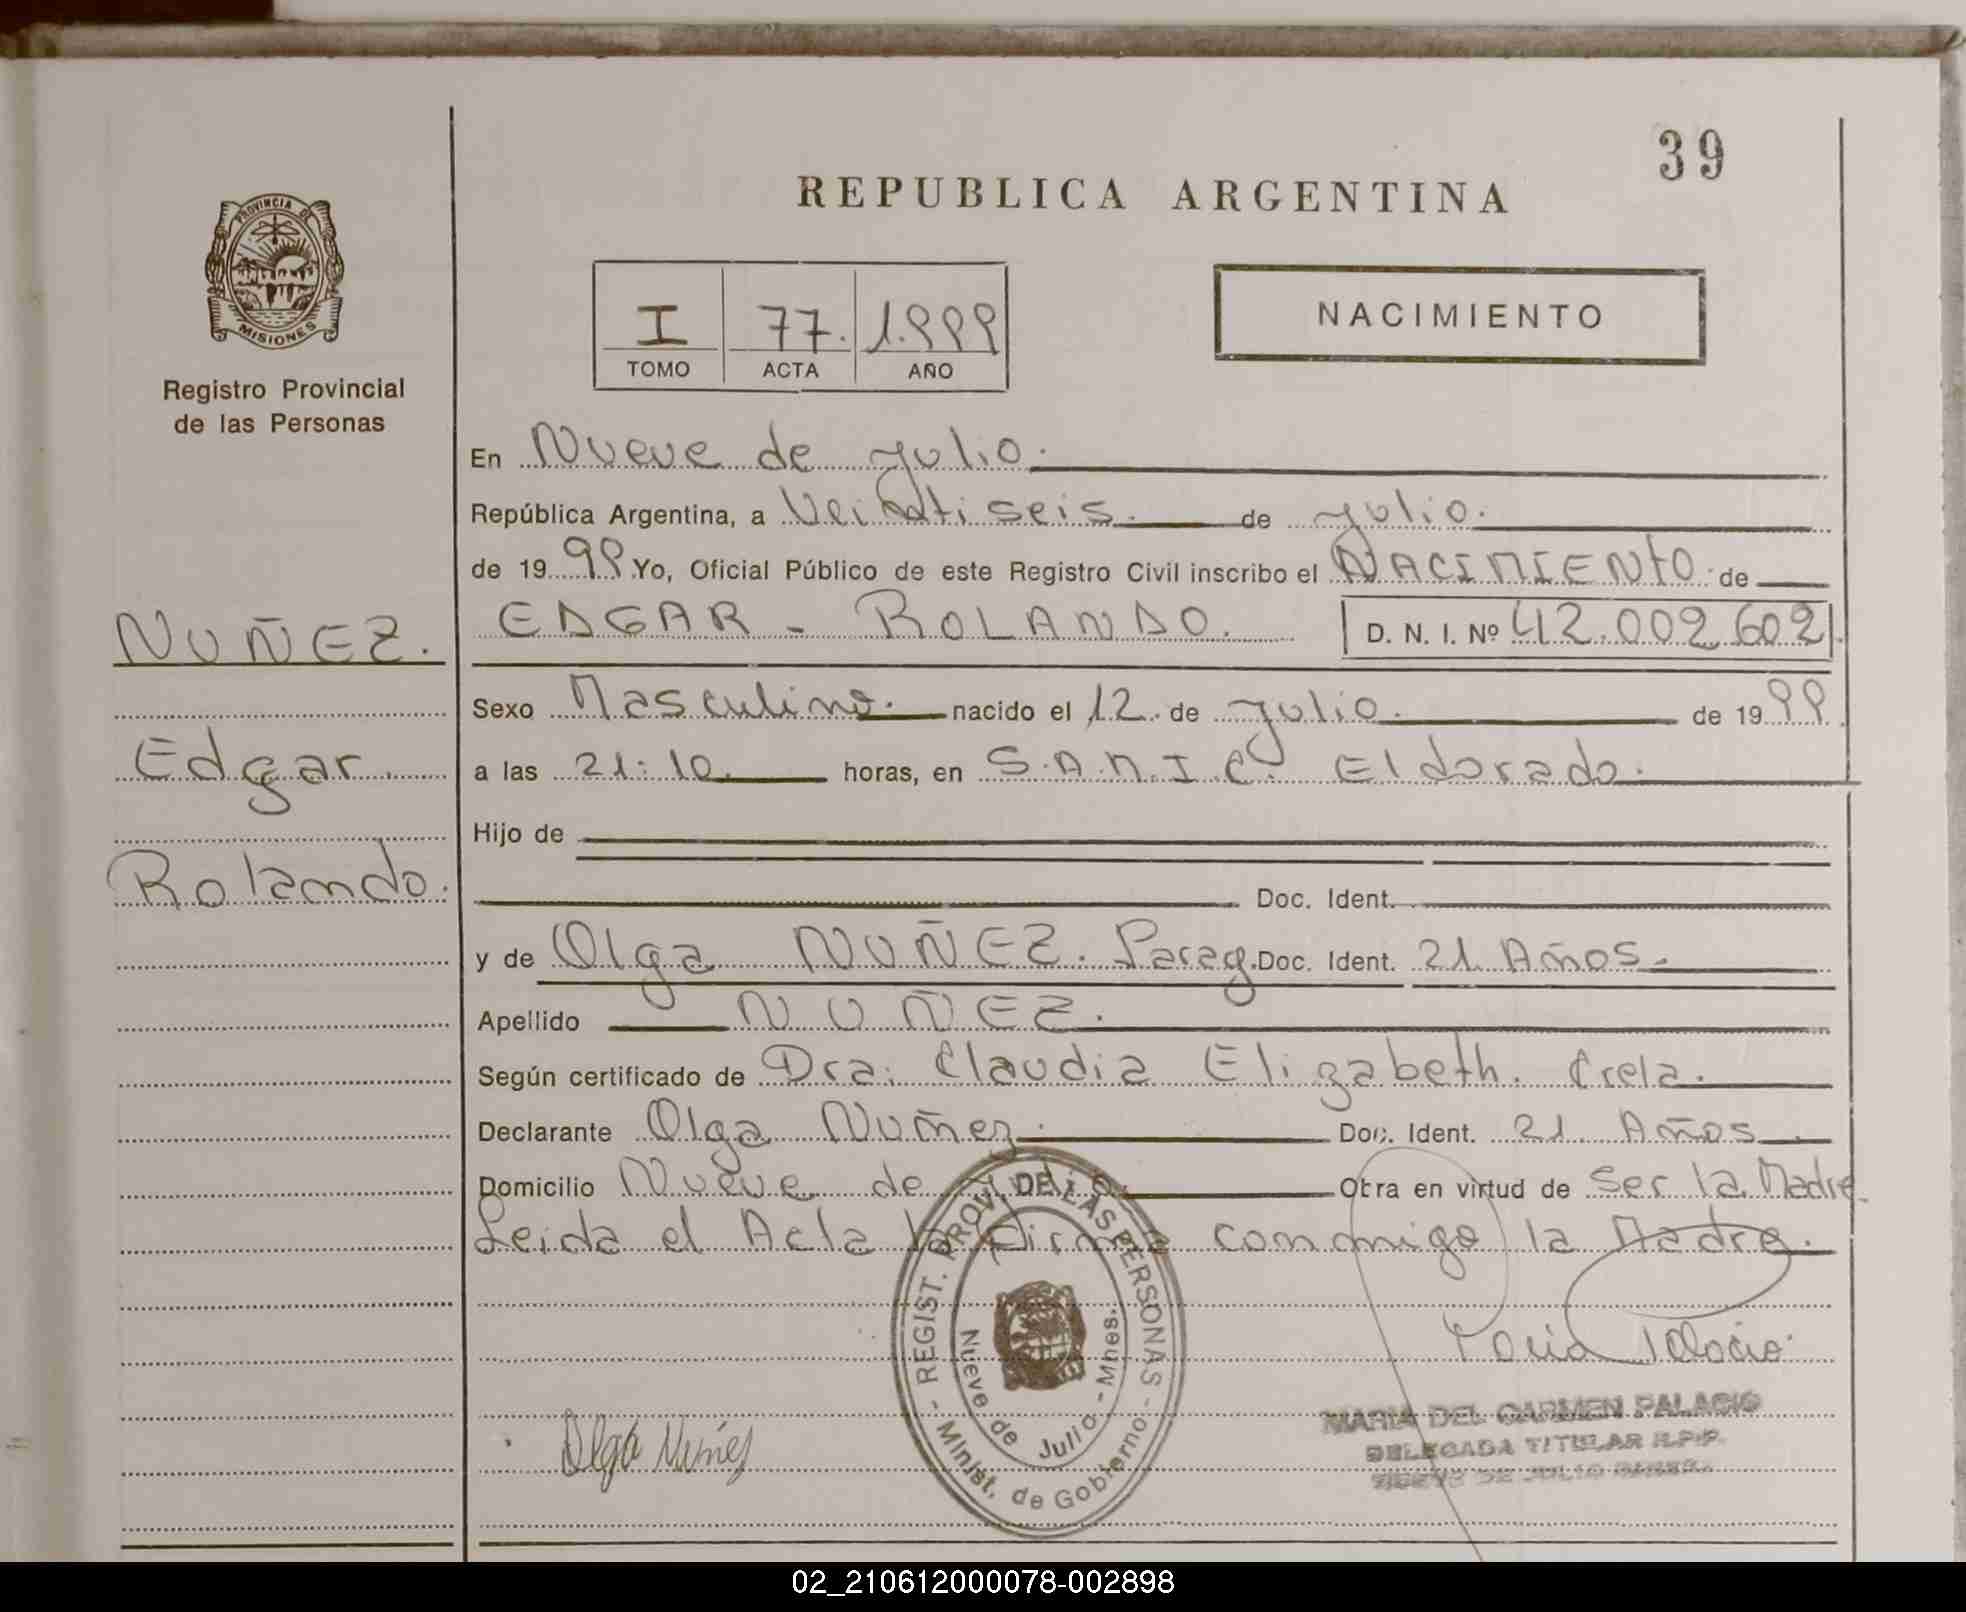 39
REPUBLICA ARGENTINA
PROVINCIA DE
MISIONES
Registro Provincial
de las Personas
I 77. 1.999
TOMO ACTA AÑO
NACIMIENTO
En Nueve de Julio.
República Argentina, a Veintiseis. de Julio.
de 19 99 Yo, Oficial Público de este Registro Civil inscribo el NACIMIENTO. de
NUÑEZ.
EDGAR - ROLANDO. D. N. I. Nº 42.002.602
Sexo Masculino. nacido el 12. de Julio. de 19 99.
Edgar
a las 21:10. horas, en S.A.M.I.C. Eldorado.
Hijo de
Rolando.
Doc. Ident.
y de Olga NUÑEZ. Parag. Doc. Ident. 21 Años.
Apellido NUÑEZ.
Según certificado de Dra. Claudia Elizabeth. Crela.
Declarante Olga Nuñez. Doc. Ident. 21 Años.
Domicilio Nueve de Julio. Obra en virtud de Ser la Madre.
Leida el Acta la Firma conmigo la Madre.
- REGIST. PROVI. DE LAS PERSONAS -
Minist. de Gobierno
Nueve de Julio - Mnes.
Olga Nuñez
Maria Palacio
MARIA DEL CARMEN PALACIO
DELEGADA TITULAR R.P.P.
NUEVE DE JULIO
02_210612000078-002898